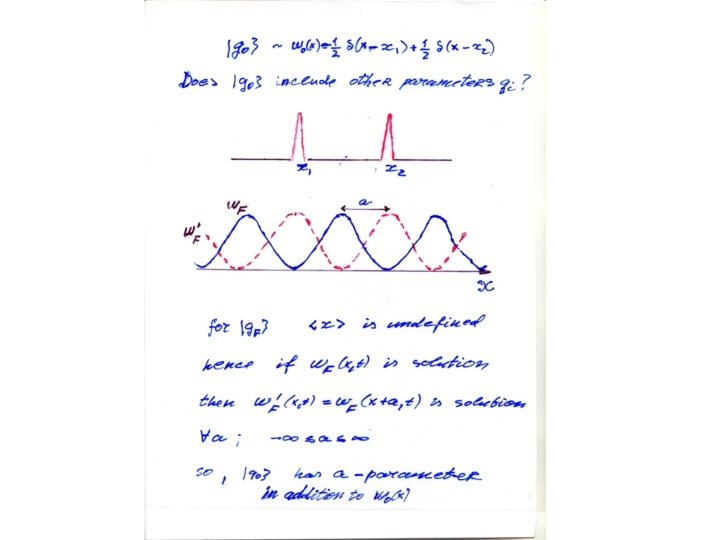 |g₀} ~ w₀(x)=½ δ(x-x₁)+½ δ(x-x₂)
Does |g₀} include other parameters qᵢ?
x₁ x₂
w_F a
w'_F
x
for |g_F} <x> is undefined
hence if w_F(x,t) is solution
then w'_F(x,t) = w_F(x+a,t) is solution
∀a; -∞≤a≤∞
so, |g₀} has a-parameter
in addition to w₀(x)